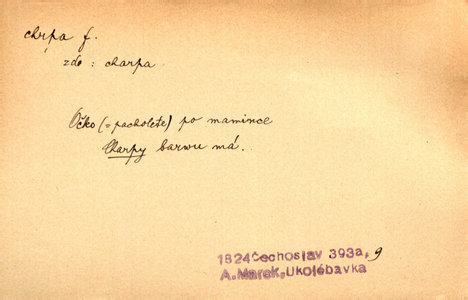 chrpa f.
zde : charpa
Očko (= pacholete) po mamince
Charpy barwu má.
1824 Čechoslav 393a, 9
A. Marek, Ukolébavka